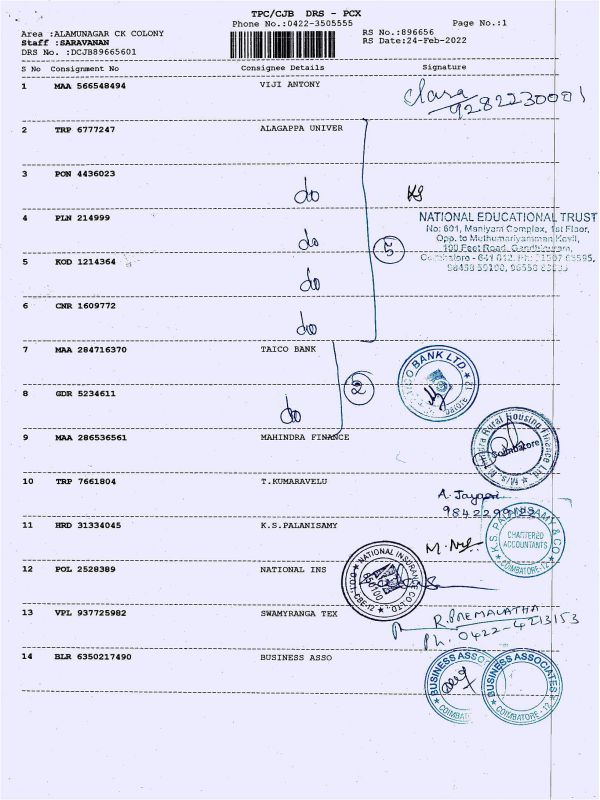 TPC/CJB DRS - PCX
Phone No.:0422-3505555
Page No.:1
Area :ALAMUNAGAR CK COLONY
Staff :SARAVANAN
DRS No. :DCJB89665601
RS No.:896656
RS Date:24-Feb-2022
S No Consignment No Consignee Details Signature
1 MAA 566548494 VIJI ANTONY
Clara
9282230001
2 TRP 6777247 ALAGAPPA UNIVER
3 PON 4436023 do
4 PLN 214999 do
5 KOD 1214364 do
6 CNR 1609772 do
5
NATIONAL EDUCATIONAL TRUST
No: 601, Maniyam Complex, 1st Floor,
Opp. to Muthumariyamman Kovil,
100 Feet Road, Gandhipuram,
Coimbatore - 641 012.
7 MAA 284716370 TAICO BANK
8 GDR 5234611 do
2
BANK LTD
9 MAA 286536561 MAHINDRA FINANCE
Rural Housing Finance Ltd.
Coimbatore
10 TRP 7661804 T.KUMARAVELU
11 HRD 31334045 K.S.PALANISAMY
K.S. PALANISAMY & CO
CHARTERED
ACCOUNTANTS
COIMBATORE-12
12 POL 2528389 NATIONAL INS
NATIONAL INSURANCE CO. LTD.
13 VPL 937725982 SWAMYRANGA TEX
R.PREMALATHA
Ph. 0422-4213153
14 BLR 6350217490 BUSINESS ASSO
BUSINESS ASSO
COIMBAT
BUSINESS ASSOCIATES
COIMBATORE-12